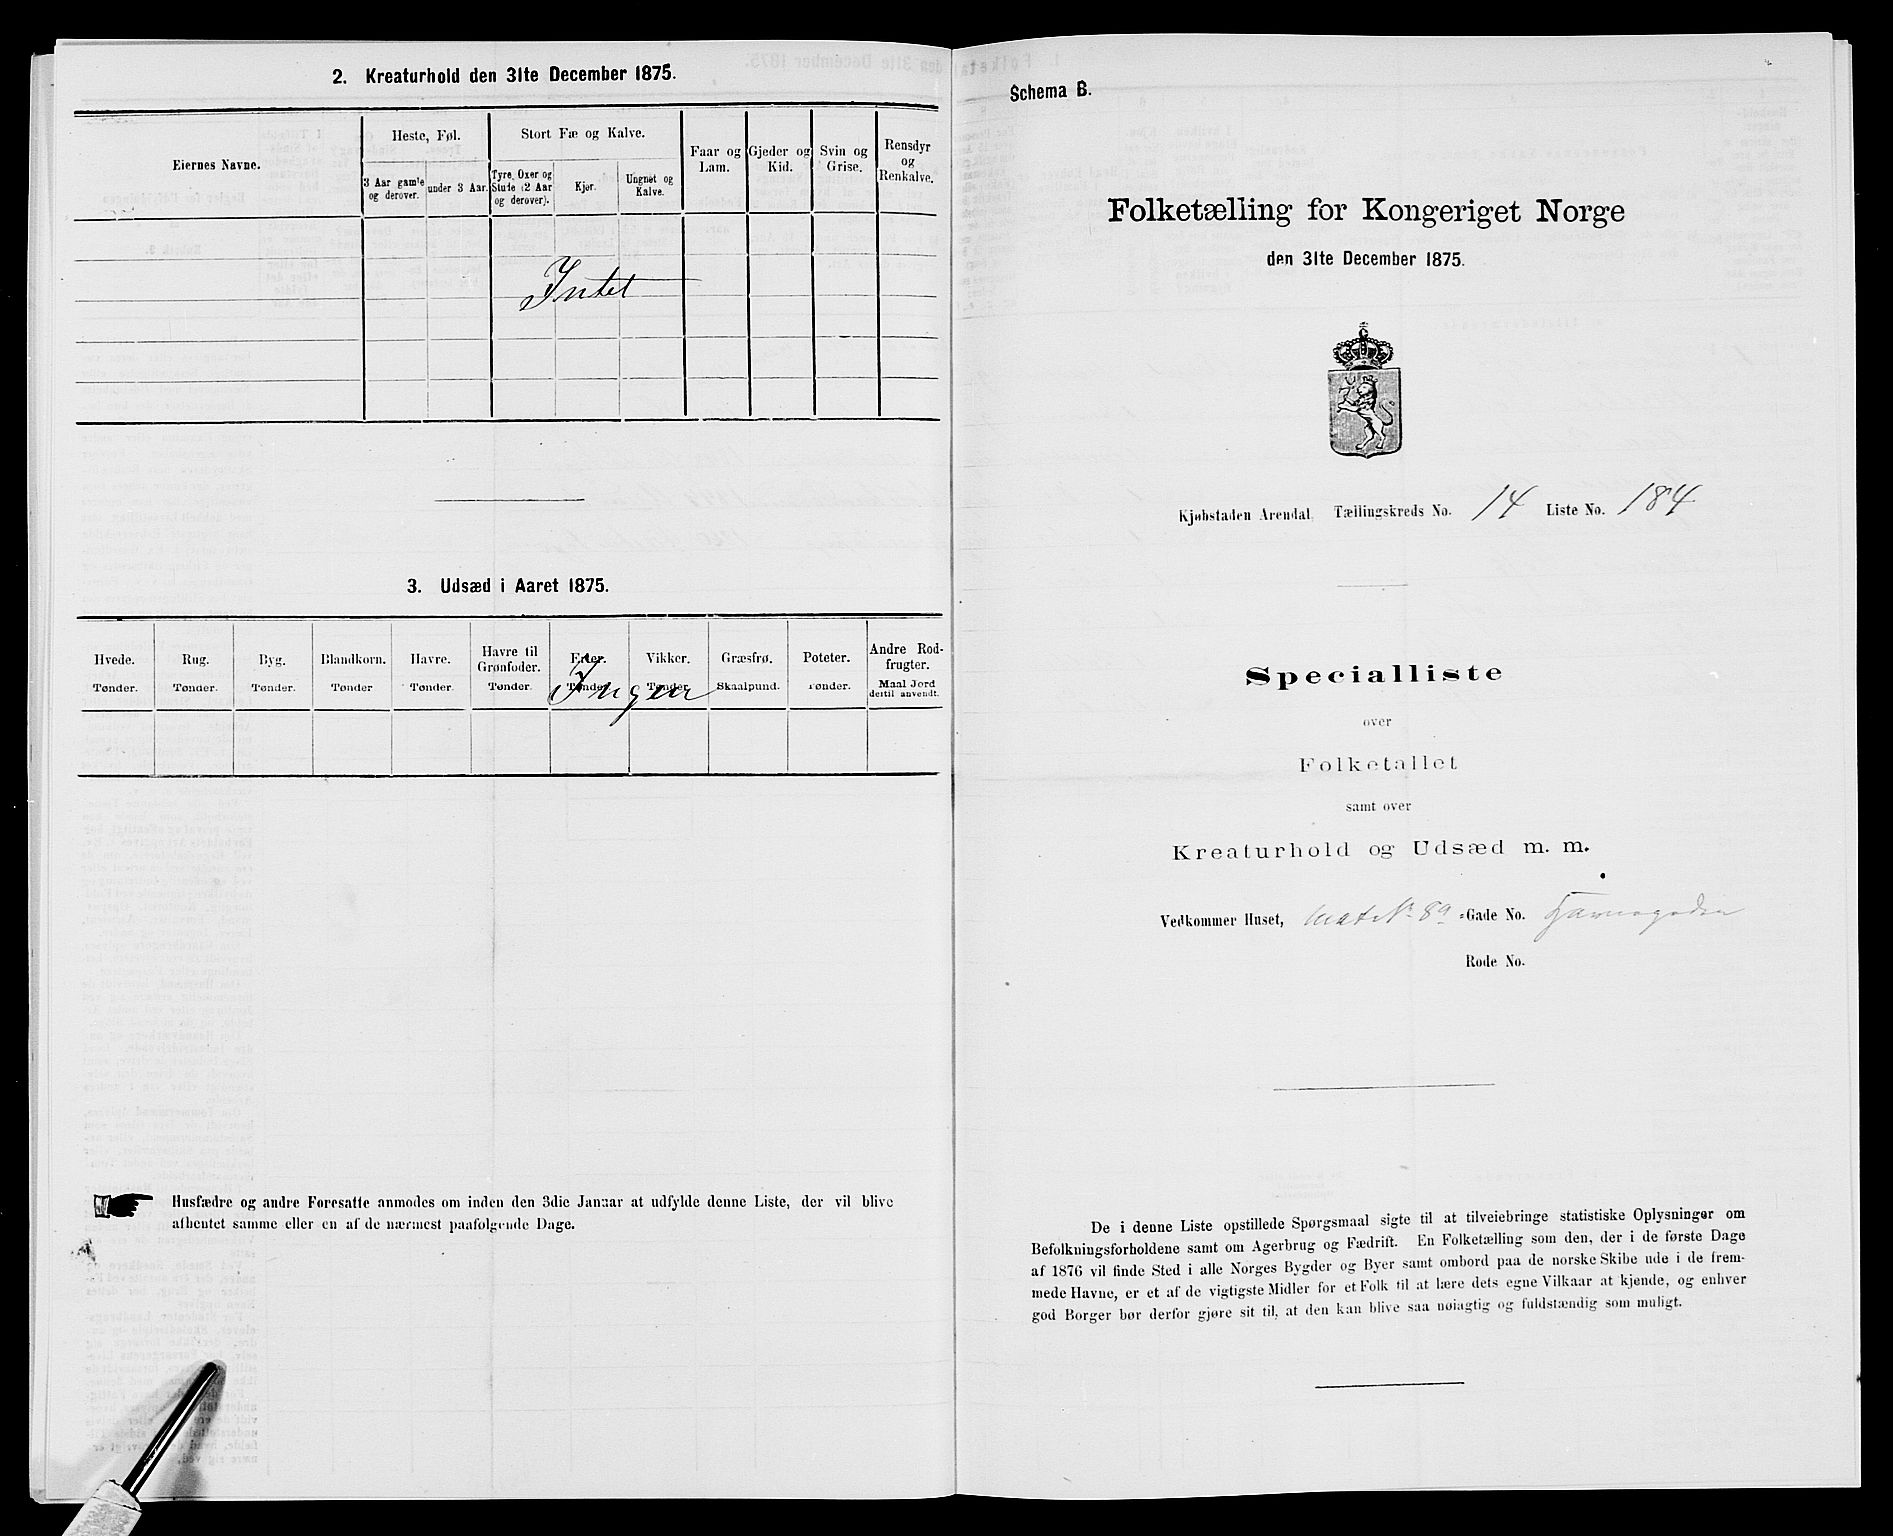 2. Kreaturhold den 31te December 1875.
Eiernes Navne.
Heste, Føl.
3 Aar gamle og derover.
under 3 Aar.
Stort Fæ og Kalve.
Tyre, Oxer og Stude (2 Aar og derover).
Kjør.
Ungnøt og Kalve.
Faar og Lam.
Gjeder og Kid.
Svin og Grise.
Rensdyr og Renkalve.
Intet
3. Udsæd i Aaret 1875.
Hvede. Tønder.
Rug. Tønder.
Byg. Tønder.
Blandkorn. Tønder
Havre. Tønder.
Havre til Grønfoder. Tønder
Erter. Tønder
Vikker. Tønder
Græsfrø. Skaalpund.
Poteter. Tønder.
Andre Rodfrugter. Maal Jord dertil anvendt.
Ingen
Husfædre og andre Foresatte anmodes om inden den 3die Januar at udfylde denne Liste, der vil blive
afhentet samme eller en af de nærmest paafølgende Dage.
Schema B.
Folketælling for Kongeriget Norge
den 31te December 1875.
Kjøbstaden Arendal. Tællingskreds No. 14 Liste No. 184
Specialliste
over
Folketallet
samt over
Kreaturhold og Udsæd m. m.
Vedkommer Huset, Mat No 8a =Gade No.
Rode No.
De i denne Liste opstillede Spørgsmaal sigte til at tilveiebringe statistiske Oplysninger om
Befolkningsforholdene samt om Agerbrug og Fædrift. En Folketælling som den, der i de første Dage
af 1876 vil finde Sted i alle Norges Bygder og Byer samt ombord paa de norske Skibe ude i de frem-
mede Havne, er et af de vigtigste Midler for et Folk til at lære dets egne Vilkaar at kjende, og enhver
god Borger bør derfor gjøre sit til, at den kan blive saa nøiagtig og fuldstændig som muligt.